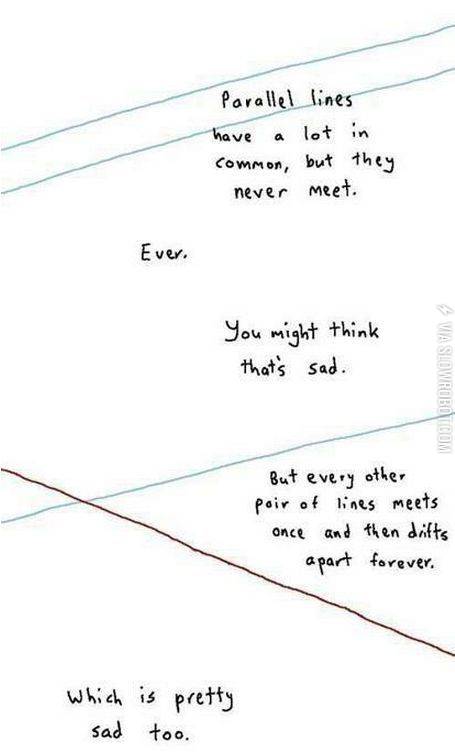 Parallel lines
have a lot in
common, but they
never meet.
Ever.
You might think
that's sad.
But every other
pair of lines meets
once and then drifts
apart forever.
Which is pretty
sad too.
VIA SLOWROBOT.COM